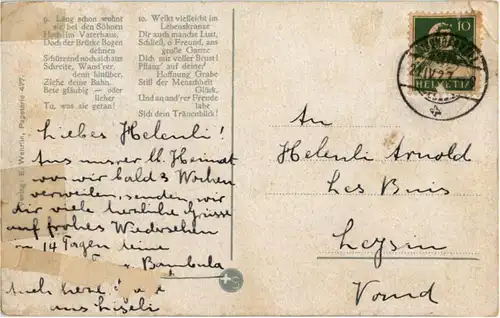 9. Lang schon wohnt
sie bei den Söhnen
Hoch im Vaterhaus,
Doch der Brücke Bogen
dehnen
Schützend noch sich aus
Schreite, Wand'rer,
denn hinüber,
Ziehe deine Bahn.
Bete gläubig — oder
lieber
Tu, was sie getan!
10. Welkt vielleicht im
Lebenskranze
Dir auch manche Lust,
Schließ, o Freund, ans
große Ganze
Dich mit voller Brust!
Pflanz' auf deiner
Hoffnung Grabe
Still der Menschheit
Glück,
Und an and'rer Freude
labe
Sich dein Tränenblick!
Verlag E. Wehrlin, Papeterie
10
HELVETIA
Liebes Helenli!
Aus unsrer ll. Heimat
wo wir bald 3 Wochen
verweilen, senden wir
dir viele herzliche Grüsse
auf frohes Wiedersehen
in 14 Tagen deine
Bambula
Auch
aus Liseli
An
Helenli Arnold
Les Buis
Leysin
Vaud